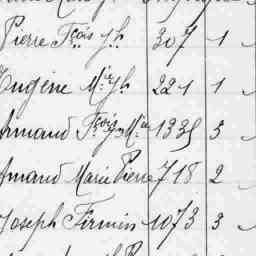 Pierre Fçois Jh 307 1
Eugène Mie Jh 221 1
Armand Fçois Mie 1335 5
Amand Marie Pierre 718 2
Joseph Firmin 1073 3